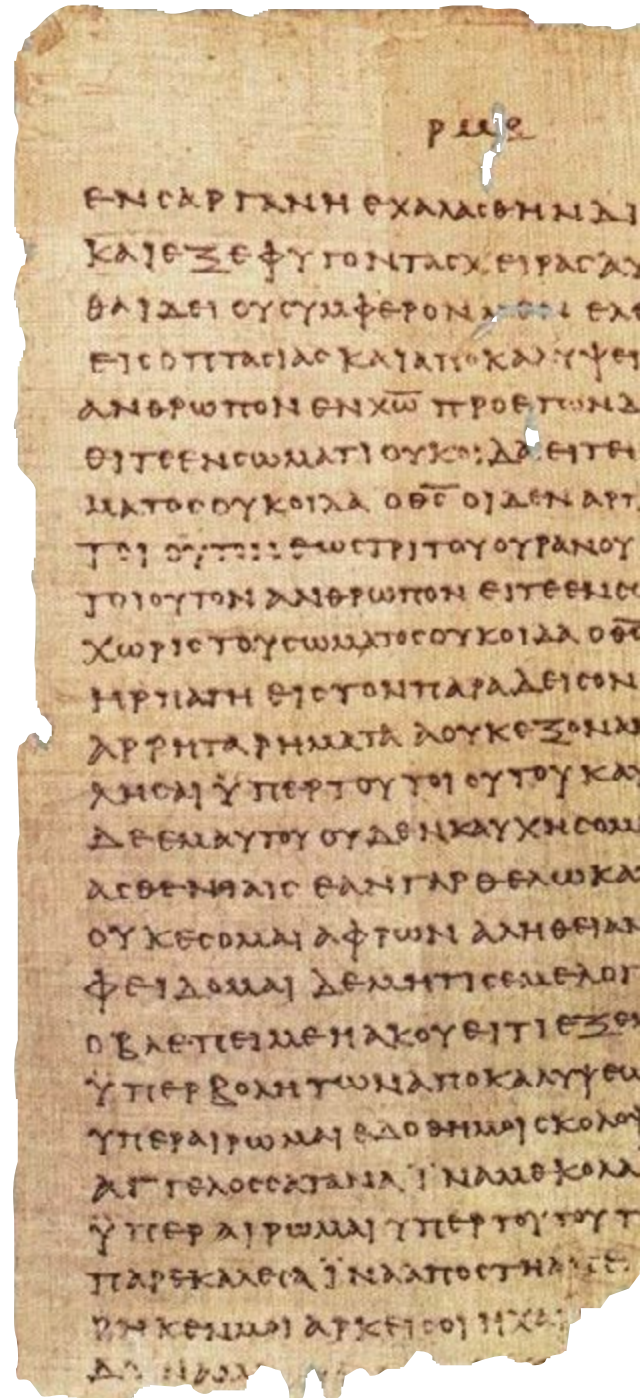 ρμε
ΕΝ ΣΑΡΓΑΝΗ ΕΧΑΛΑΣΘΗΝ ΔΙ
ΚΑΙ ΕΞΕΦΥΓΟΝ ΤΑΣ ΧΕΙΡΑΣ ΑΥ
ΘΑΙ ΔΕΙ ΟΥ ΣΥΜΦΕΡΟΝ ΜΕΝ ΕΛΕ
ΕΙΣ ΟΠΤΑΣΙΑΣ ΚΑΙ ΑΠΟΚΑΛΥΨΕΙ
ΑΝΘΡΩΠΟΝ ΕΝ ΧΩ ΠΡΟ ΕΤΩΝ Δ
ΘΙΤΕ ΕΝ ΣΩΜΑΤΙ ΟΥΚ ΟΙΔΑ ΕΙΤΕ
ΜΑΤΟΣ ΟΥΚ ΟΙΔΑ Ο ΘΣ ΟΙΔΕΝ ΑΡΠ
ΕΩΣ ΤΡΙΤΟΥ ΟΥΡΑΝΟΥ
ΤΟΙΟΥΤΟΝ ΑΝΘΡΩΠΟΝ ΕΙΤΕ ΕΝ ΣΩ
ΧΩΡΙΣ ΤΟΥ ΣΩΜΑΤΟΣ ΟΥΚ ΟΙΔΑ Ο ΘΣ
ΗΡΠΑΓΗ ΕΙΣ ΤΟΝ ΠΑΡΑΔΕΙΣΟΝ
ΑΡΡΗΤΑ ΡΗΜΑΤΑ Α ΟΥΚ ΕΞΟΝ ΑΝ
ΛΗΣΑΙ ΫΠΕΡ ΤΟΥ ΤΟΙΟΥΤΟΥ ΚΑΥ
ΔΕ ΕΜΑΥΤΟΥ ΟΥΔΕΝ ΚΑΥΧΗΣΟΜ
ΑΣΘΕΝΙΑΙΣ ΕΑΝ ΓΑΡ ΘΕΛΩ ΚΑ
ΟΥΚ ΕΣΟΜΑΙ ΑΦΡΩΝ ΑΛΗΘΕΙΑΝ
ΦΕΙΔΟΜΑΙ ΔΕ ΜΗ ΤΙΣ ΕΜΕ ΛΟΓ
Ο ΒΛΕΠΕΙ ΜΕ Η ΑΚΟΥΕΙ ΤΙ ΕΞ ΕΜ
ΫΠΕΡΒΟΛΗ ΤΩΝ ΑΠΟΚΑΛΥΨΕΩ
ΥΠΕΡΑΙΡΩΜΑΙ ΕΔΟΘΗ ΜΟΙ ΣΚΟΛΟΨ
ΑΓΓΕΛΟΣ ΣΑΤΑΝΑ ΪΝΑ ΜΕ ΚΟΛΑ
ΫΠΕΡΑΙΡΩΜΑΙ ΥΠΕΡ ΤΟΥΤΟΥ Τ
ΠΑΡΕΚΑΛΕΣΑ ΪΝΑ ΑΠΟΣΤΗ
ΚΕΝ ΜΟΙ ΑΡΚΕΙ ΣΟΙ Η ΧΑΡ